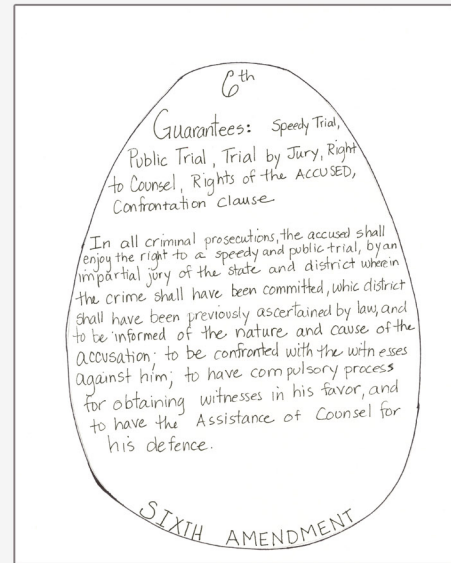 6th
Guarantees: Speedy Trial,
Public Trial, Trial by Jury, Right
to Counsel, Rights of the ACCUSED,
Confrontation Clause
In all criminal prosecutions, the accused shall
enjoy the right to a speedy and public trial, by an
impartial jury of the state and district wherein
the crime shall have been committed, whic district
shall have been previously ascertained by law, and
to be informed of the nature and cause of the
accusation; to be confronted with the witnesses
against him; to have compulsory process
for obtaining witnesses in his favor, and
to have the Assistance of Counsel for
his defence.
SIXTH AMENDMENT